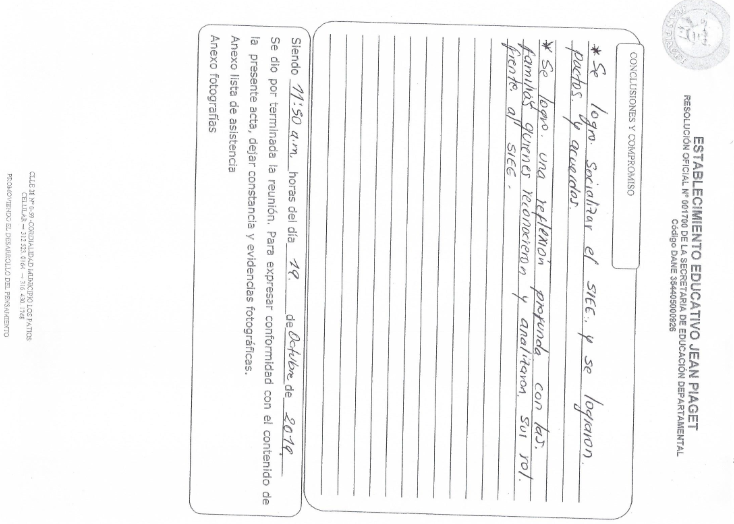 ESTABLECIMIENTO EDUCATIVO JEAN PIAGET
RESOLUCIÓN OFICIAL Nº 001700 DE LA SECRETARIA DE EDUCACIÓN DEPARTAMENTAL
Código DANE 354405000926
CONCLUSIONES Y COMPROMISO
* Se logro socializar el SIEE. y se lograron.
pactos y acuerdos.
* Se logro. una reflexión profunda con las.
familias quienes reconocieron y analizaron. sus rol.
frente al SIEE.
Siendo 11:50 a.m. horas del día 19. de Octubre de 2019
Se dio por terminada la reunión. Para expresar conformidad con el contenido de
la presente acta, dejar constancia y evidencias fotográficas.
Anexo lista de asistencia
Anexo fotografías
MUNICIPIO LOS PATIOS
CELULAR
PROMOVIENDO EL DESARROLLO DEL PENSAMIENTO